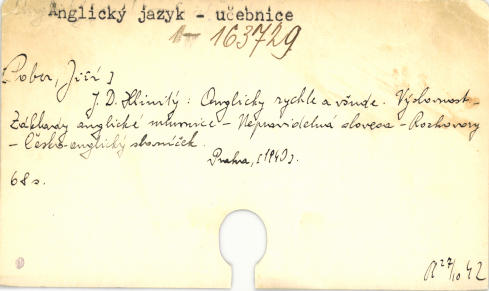 Anglický jazyk - učebnice
1- 163729
[Pober, Jiří]
J. D. Hlinitý: Anglicky rychle a všude. Výslovnost -
Základy anglické mluvnice - Nepravidelná slovesa - Rozhovory
- Česko-anglický slovníček.
Praha, [1940].
68 s.
R 27/10 42